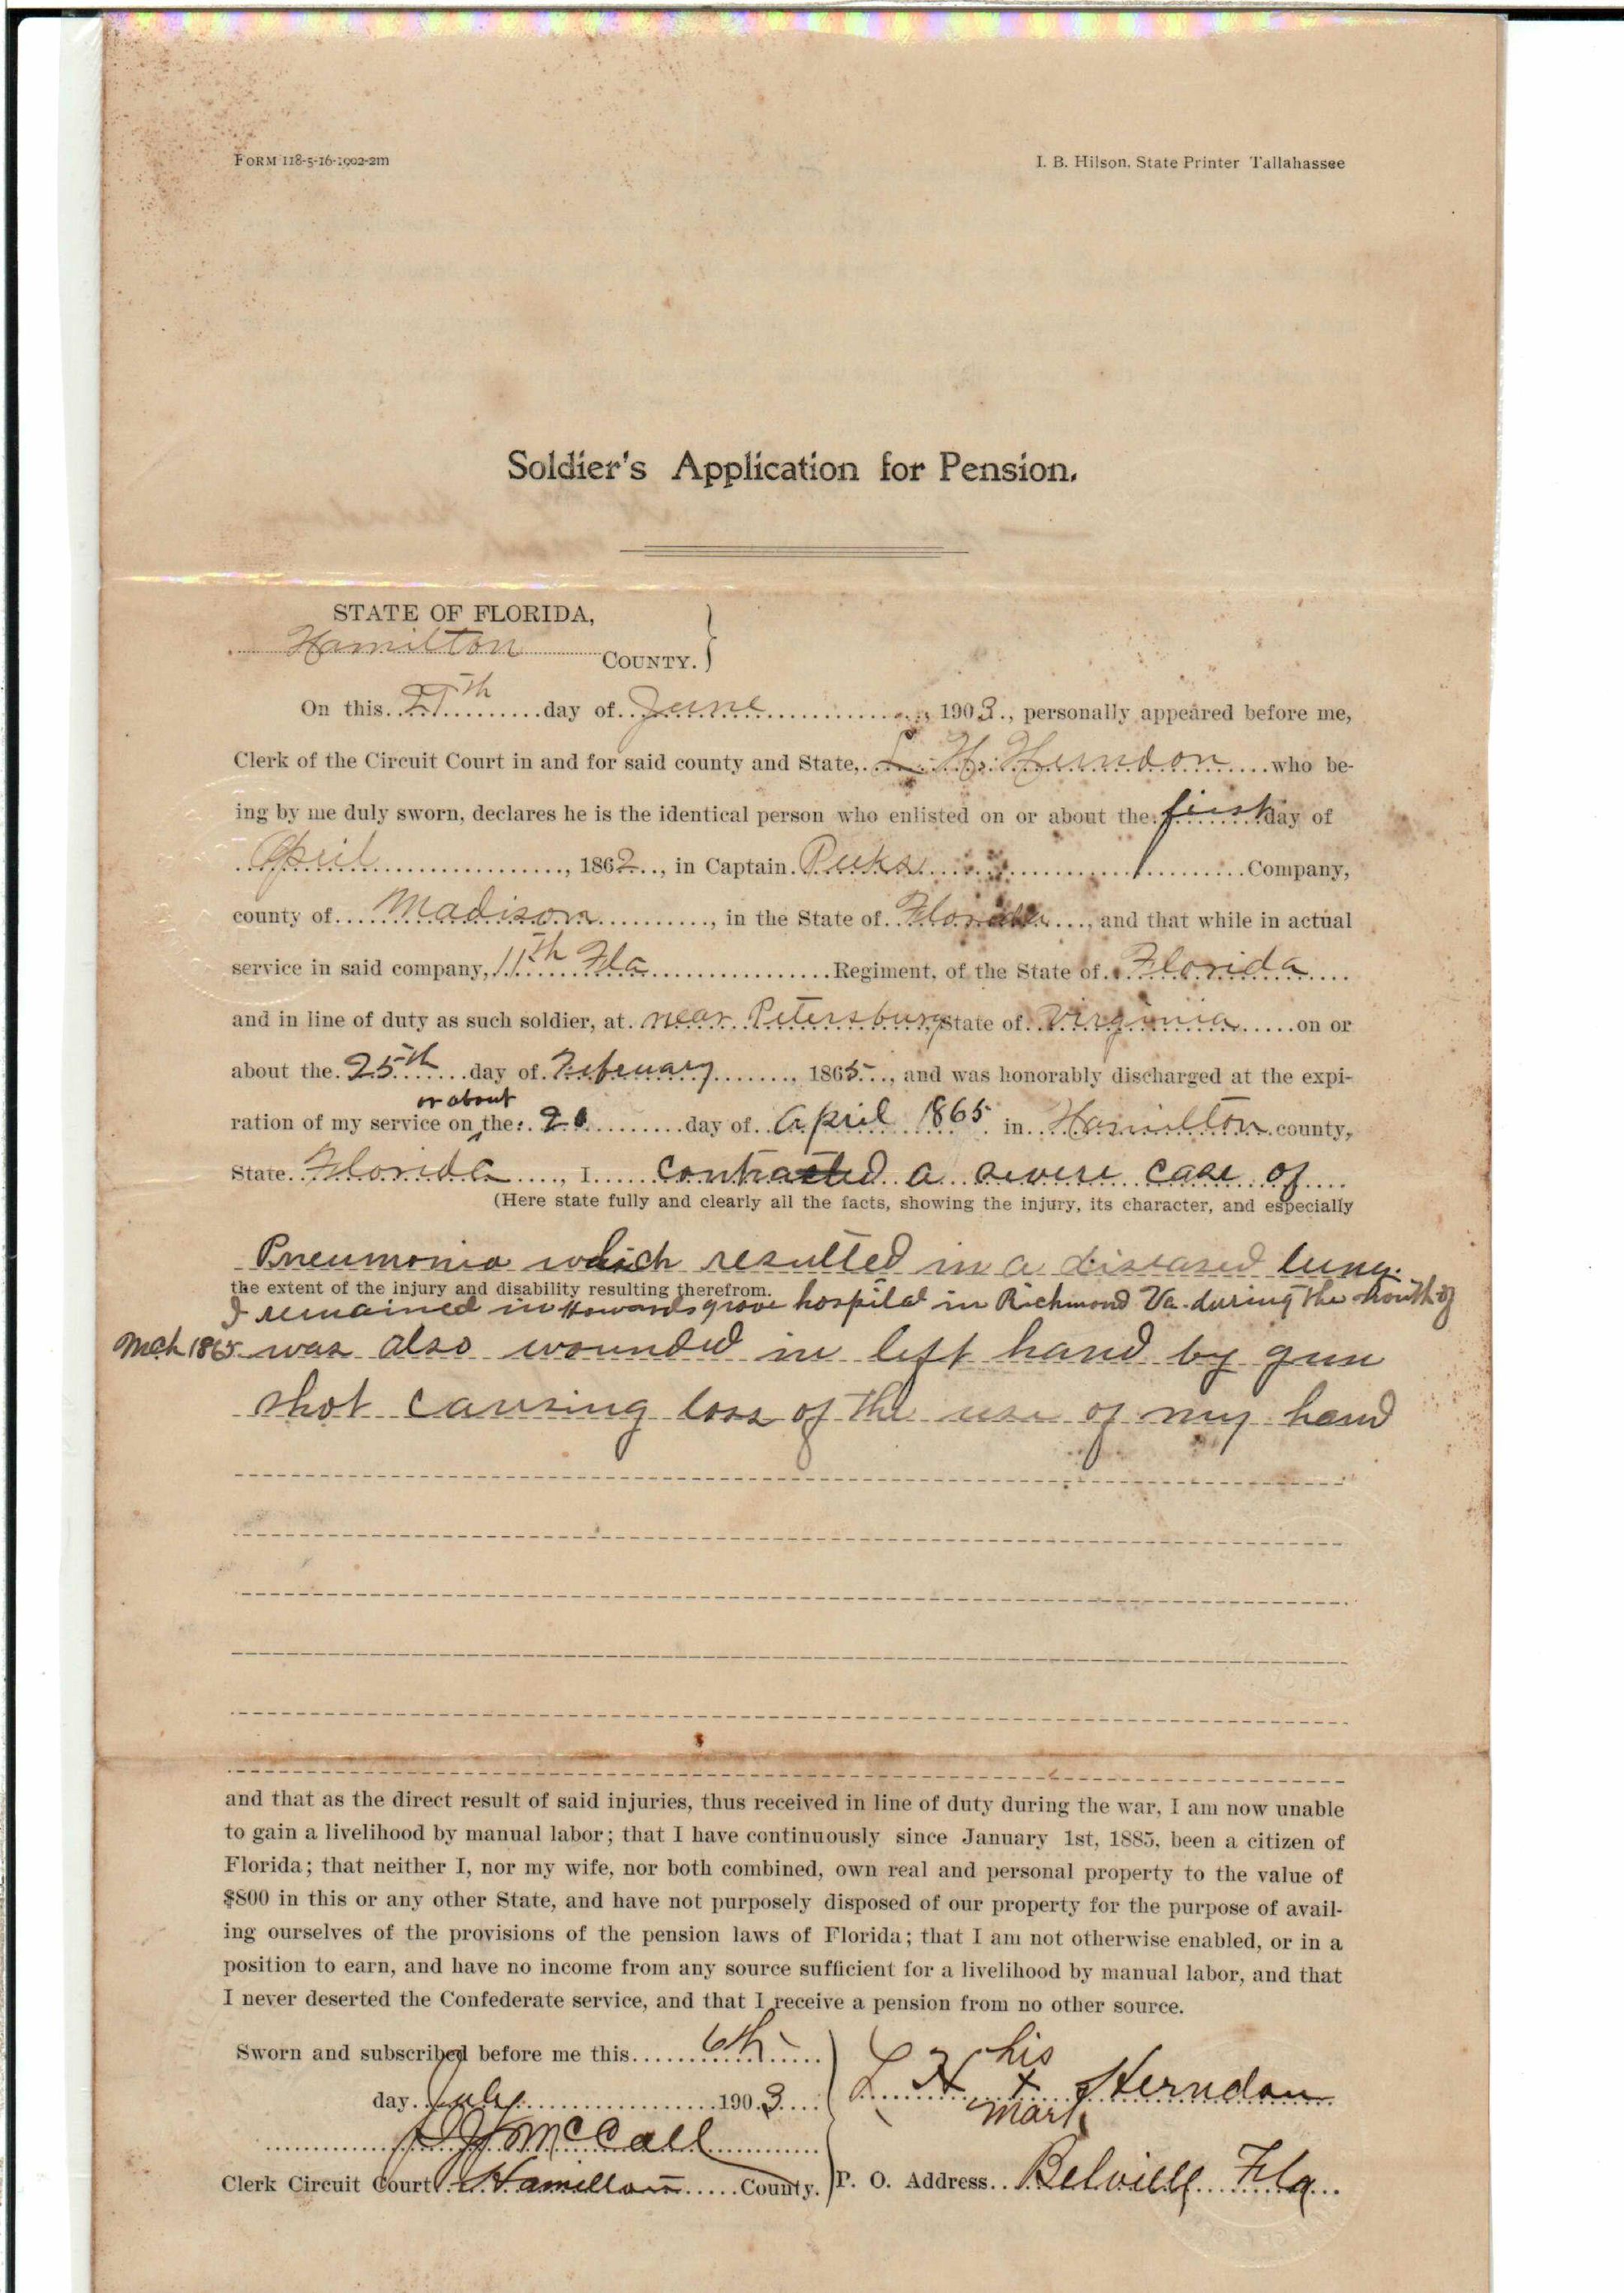 FORM 118-5-16-1902-2m
I. B. Hilson, State Printer Tallahassee
Soldier's Application for Pension.
STATE OF FLORIDA,
Hamilton COUNTY.
On this th day of June, 1903, personally appeared before me,
Clerk of the Circuit Court in and for said county and State, L. H. Herndon who be-
ing by me duly sworn, declares he is the identical person who enlisted on or about the first day of
April, 1862, in Captain Company,
county of Madison, in the State of Florida, and that while in actual
service in said company, 11th Fla Regiment, of the State of Florida
and in line of duty as such soldier, at near Petersburg State of Virginia on or
about the 25th day of February, 1865, and was honorably discharged at the expi-
or about
ration of my service on the day of April 1865 in Hamilton county,
State Florida, I contracted a severe case of
(Here state fully and clearly all the facts, showing the injury, its character, and especially
Pneumonia which resulted in a diseased lung.
the extent of the injury and disability resulting therefrom.
I remained in Howards grove hospital in Richmond Va. during the month of
Mch 1865 was also wounded in left hand by gun
shot causing loss of the use of my hand
and that as the direct result of said injuries, thus received in line of duty during the war, I am now unable
to gain a livelihood by manual labor; that I have continuously since January 1st, 1885, been a citizen of
Florida; that neither I, nor my wife, nor both combined, own real and personal property to the value of
$800 in this or any other State, and have not purposely disposed of our property for the purpose of avail-
ing ourselves of the provisions of the pension laws of Florida; that I am not otherwise enabled, or in a
position to earn, and have no income from any source sufficient for a livelihood by manual labor, and that
I never deserted the Confederate service, and that I receive a pension from no other source.
Sworn and subscribed before me this 6th
day July 1903
his
L H x Herndon
mark
McCall
Clerk Circuit Court Hamilton County.
P. O. Address Belville Fla